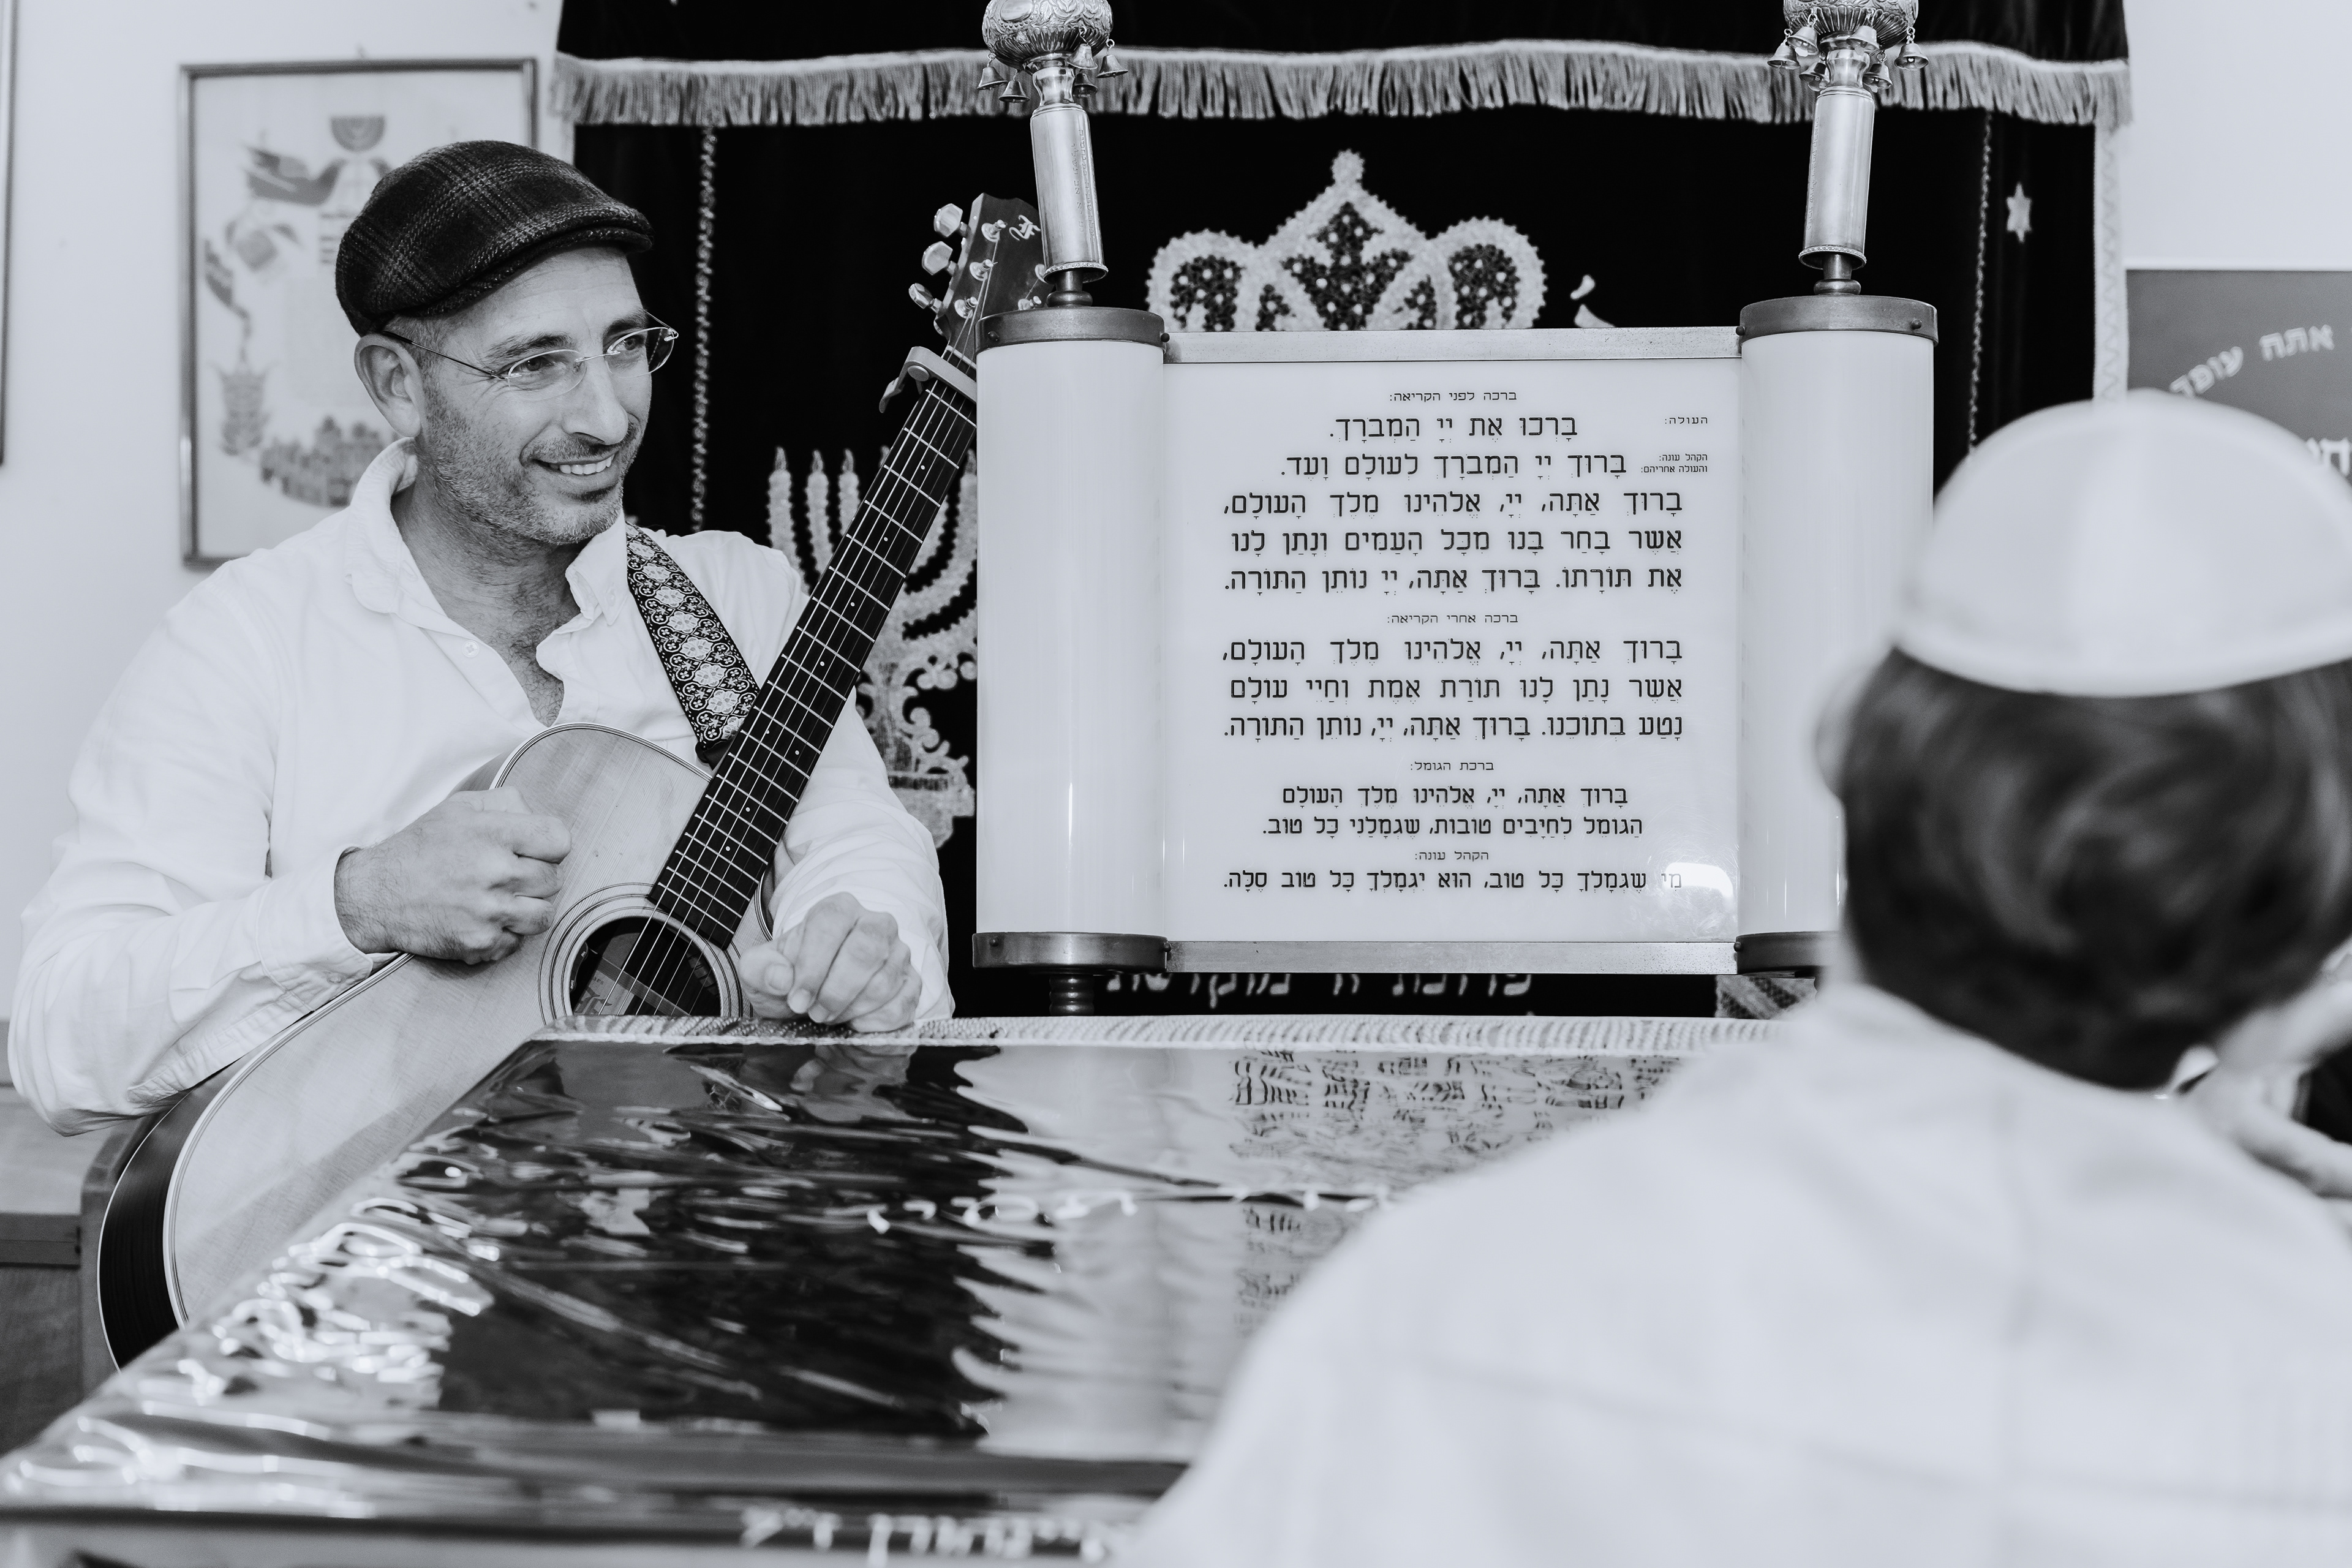 ברכה לפני הקריאה:
העולה:
בָּרְכוּ אֶת יְיָ הַמְבֹרָךְ.
הקהל עונה:
והעולה אחריהם:
בָּרוּךְ יְיָ הַמְבֹרָךְ לְעוֹלָם וָעֶד.
בָּרוּךְ אַתָּה, יְיָ, אֱלֹהֵינוּ מֶלֶךְ הָעוֹלָם,
אֲשֶׁר בָּחַר בָּנוּ מִכָּל הָעַמִּים וְנָתַן לָנוּ
אֶת תּוֹרָתוֹ. בָּרוּךְ אַתָּה, יְיָ נוֹתֵן הַתּוֹרָה.
ברכה אחרי הקריאה:
בָּרוּךְ אַתָּה, יְיָ, אֱלֹהֵינוּ מֶלֶךְ הָעוֹלָם,
אֲשֶׁר נָתַן לָנוּ תּוֹרַת אֱמֶת וְחַיֵּי עוֹלָם
נָטַע בְּתוֹכֵנוּ. בָּרוּךְ אַתָּה, יְיָ, נוֹתֵן הַתּוֹרָה.
ברכת הגומל:
בָּרוּךְ אַתָּה, יְיָ, אֱלֹהֵינוּ מֶלֶךְ הָעוֹלָם
הַגּוֹמֵל לְחַיָּבִים טוֹבוֹת, שֶׁגְּמָלַנִי כָּל טוֹב.
הקהל עונה:
מִי שֶׁגְּמָלְךָ כָּל טוֹב, הוּא יִגְמָלְךָ כָּל טוֹב סֶלָה.
אתה